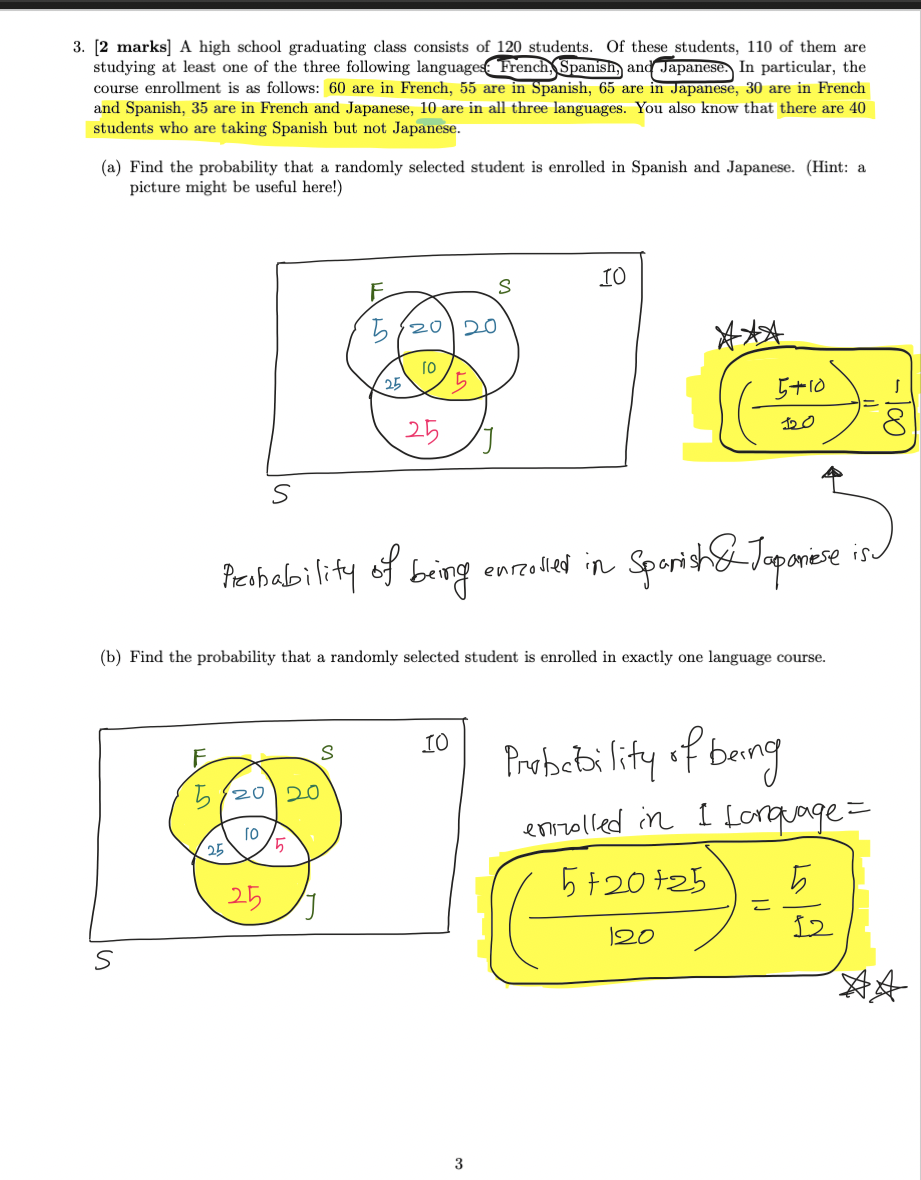 3. [2 marks] A high school graduating class consists of 120 students. Of these students, 110 of them are
studying at least one of the three following languages: French, Spanish, and Japanese. In particular, the
course enrollment is as follows: 60 are in French, 55 are in Spanish, 65 are in Japanese, 30 are in French
and Spanish, 35 are in French and Japanese, 10 are in all three languages. You also know that there are 40
students who are taking Spanish but not Japanese.
(a) Find the probability that a randomly selected student is enrolled in Spanish and Japanese. (Hint: a
picture might be useful here!)
F S 10
5 20 20
10
25 5
25 J
S
(5+10/120) = 1/8
Probability of being enrolled in Spanish & Japaniese is
(b) Find the probability that a randomly selected student is enrolled in exactly one language course.
F S 10
5 20 20
10
25 5
25 J
S
Probability of being
enrolled in 1 language =
(5+20+25/120) = 5/12
3